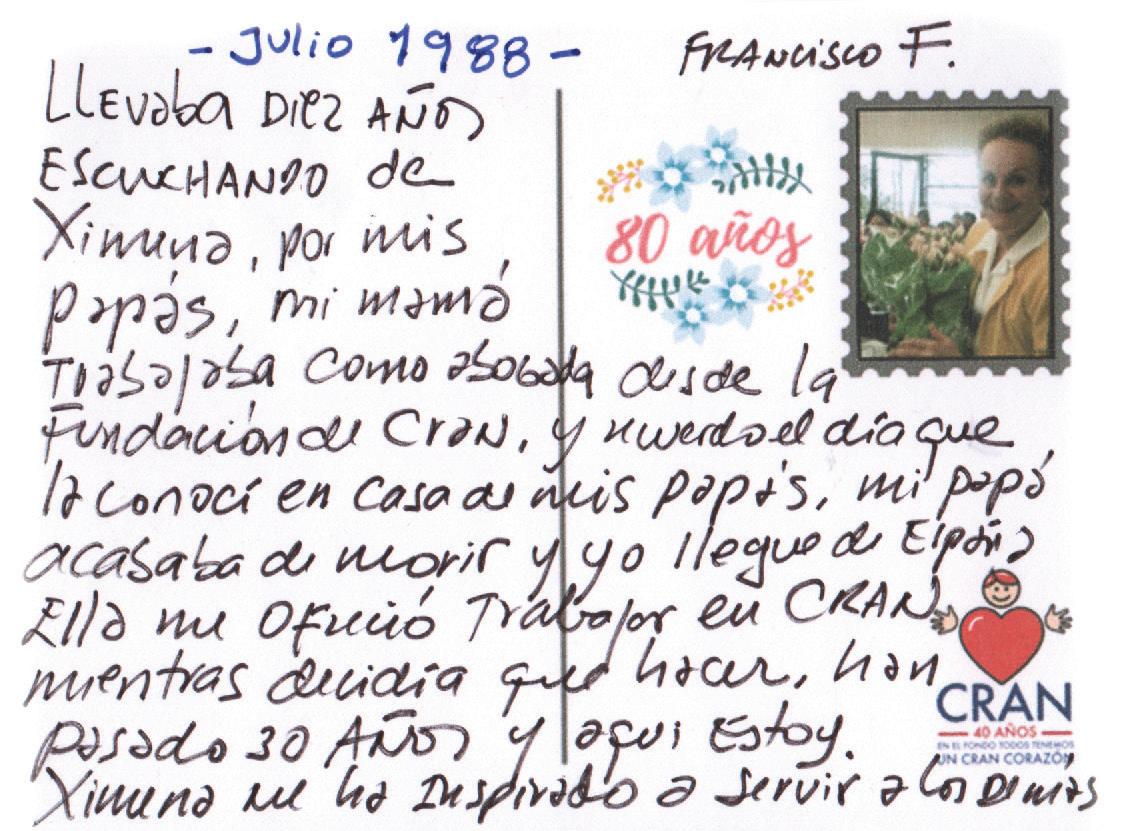 - Julio 1988 -
FRANCISCO F.
LLEVABA DIEZ AÑOS
ESCUCHANDO de
Ximena, por mis
papás, mi mamá
Trabajaba como abogada desde la
Fundación de CRAN, y recuerdo el día que
la conocí en casa de mis papás, mi papá
acababa de morir y yo llegue de España
Ella me OFreció Trabajar en CRAN
mientras decidía que hacer, han
pasado 30 AÑOS y aqui Estoy.
Ximena me ha Inspirado a Servir a los Demás
80 años
CRAN
40 AÑOS
EN EL FONDO TODOS TENEMOS
UN CRAN CORAZÓN